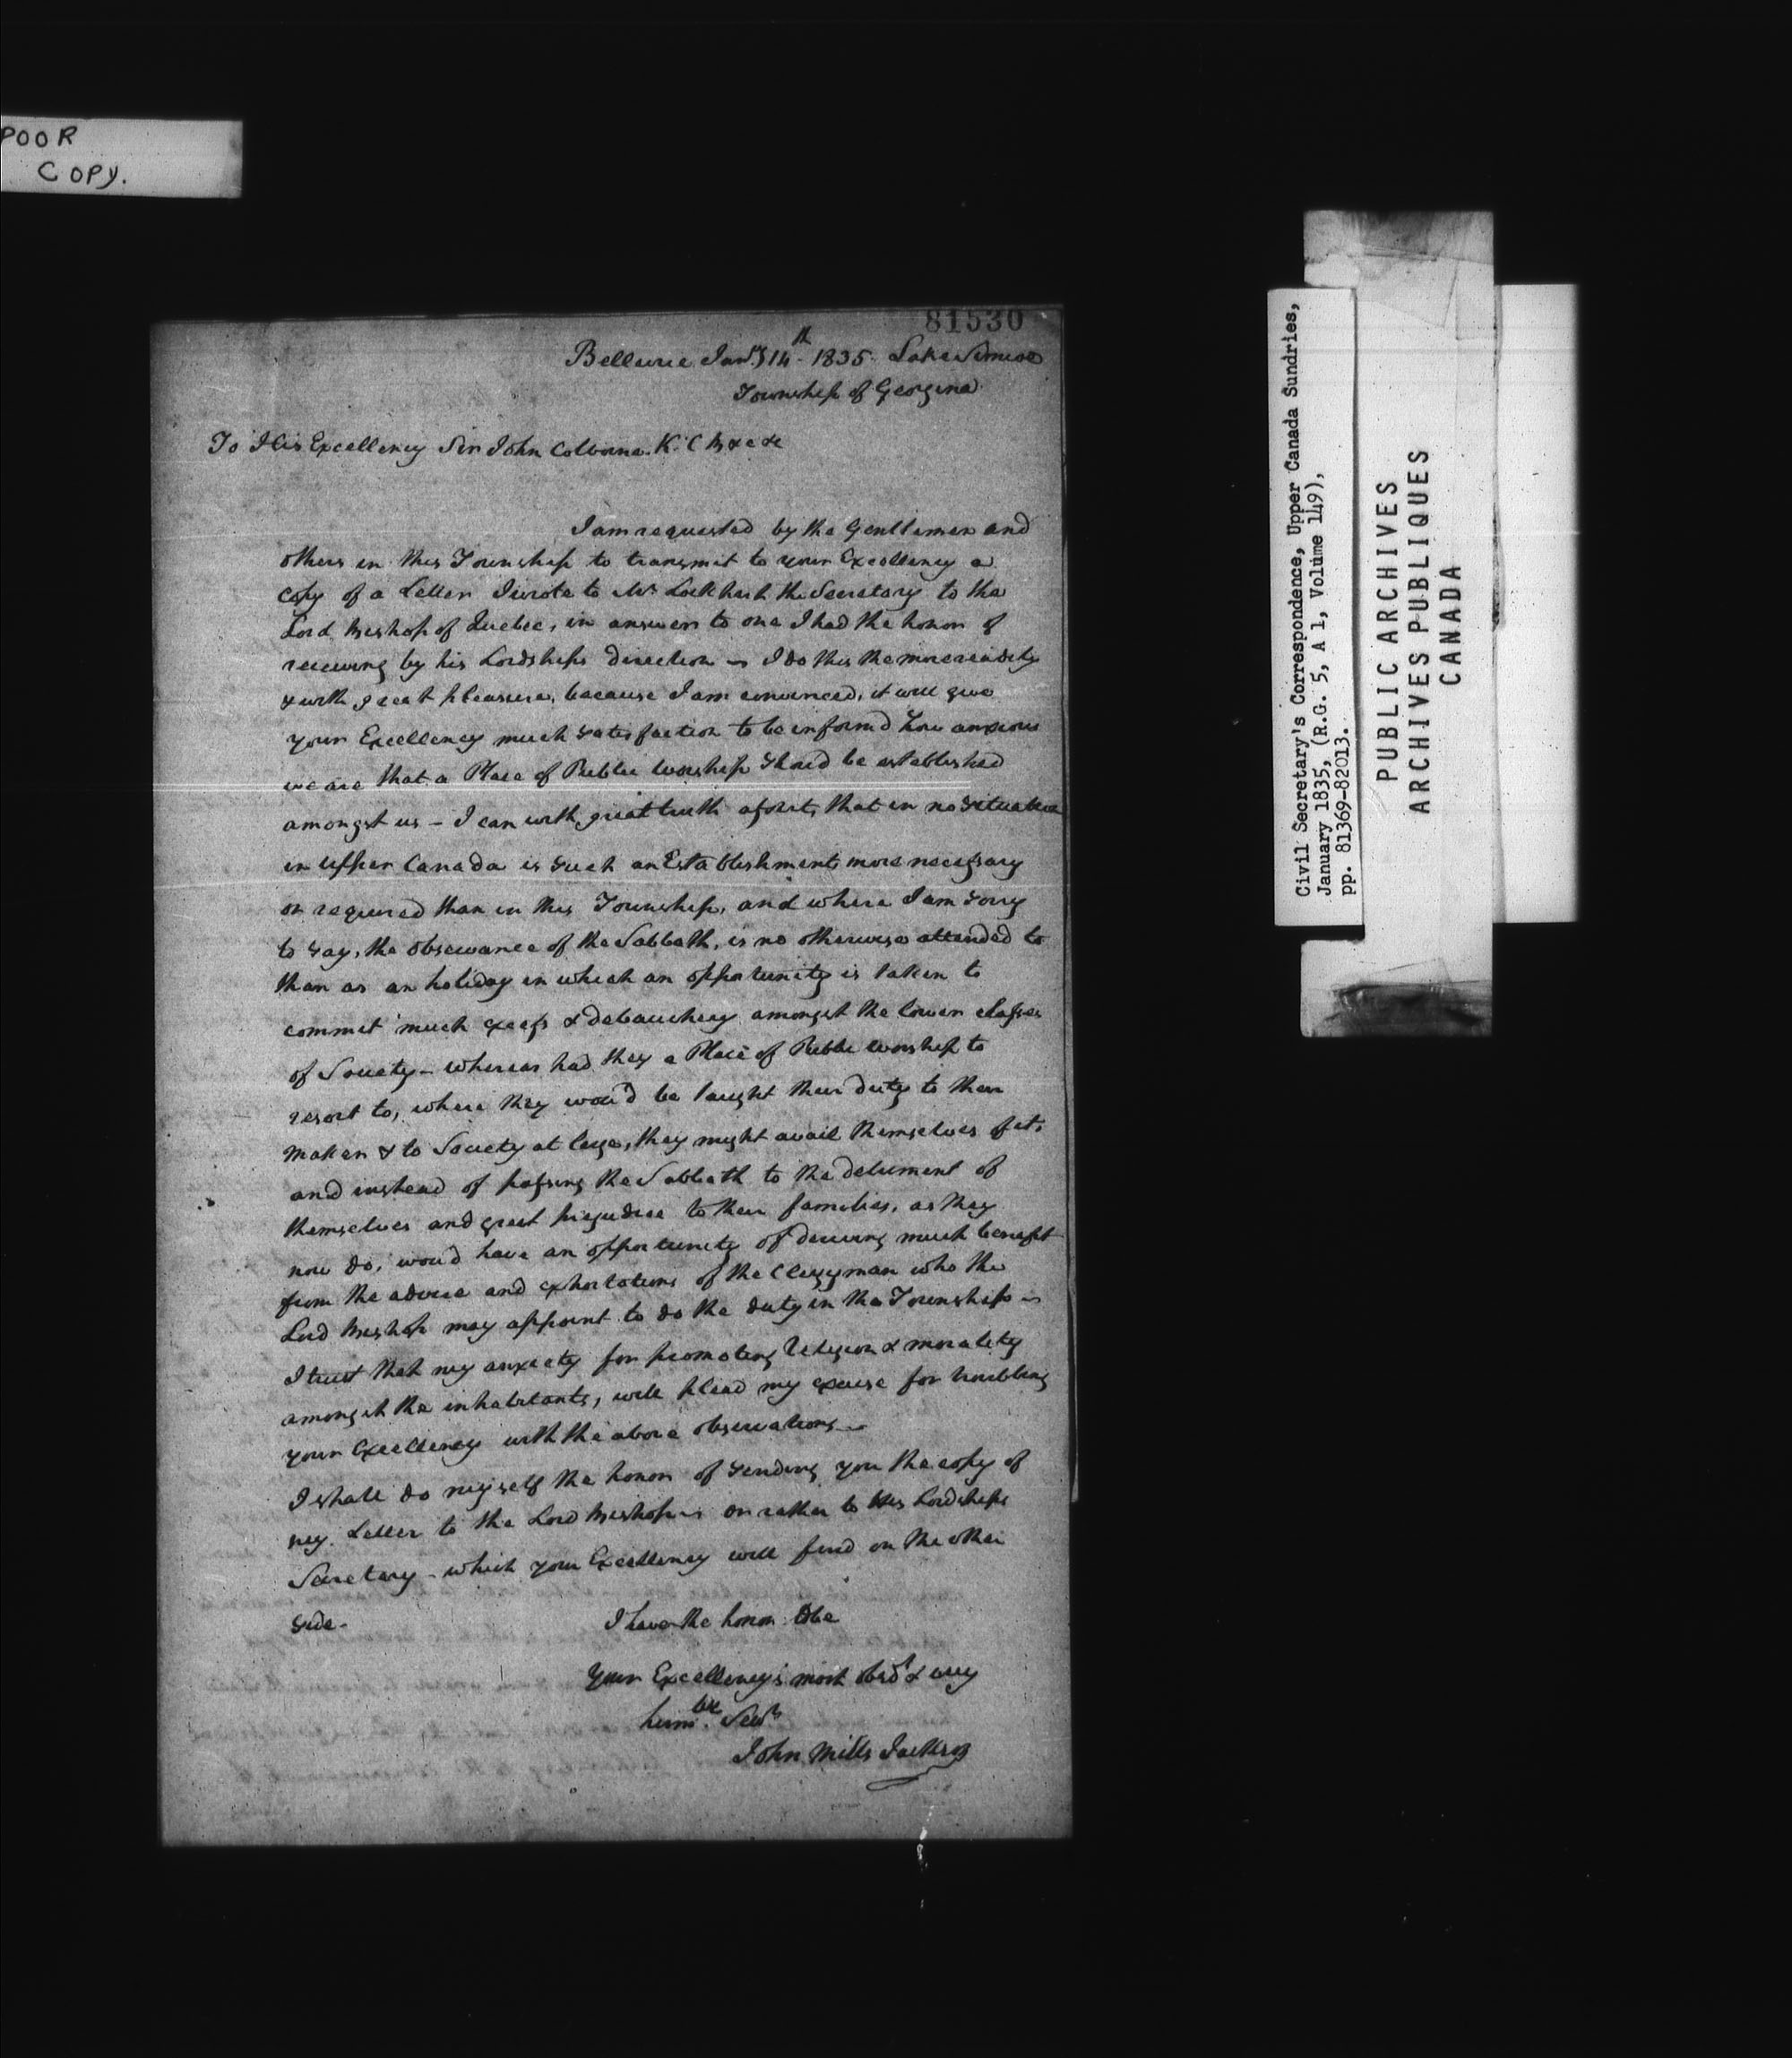 POOR
COPY.
81530
Bellevue Jany 14th 1835 Lake Simcoe
Township of Georgina
To His Excellency Sir John Colborne K.C B &c &c
I am requested by the Gentlemen and
others in this Township to transmit to your Excellency a
copy of a Letter I wrote to Mr Lockhart the Secretary to the
Lord Bishop of Quebec, in answer to one I had the honor of
receiving by his Lordships direction – I do this the more readily
& with great pleasure, because I am convinced, it will give
your Excellency much satisfaction to be inform'd how anxious
we are that a Place of Public Worship shou'd be established
amongst us – I can with great truth assert, that in no situation
in Upper Canada is such an Establishment more necessary
or required than in this Township, and where I am sorry
to say, the observance of the Sabbath, is no otherwise attended to
than as an holiday in which an opportunity is taken to
commit much excess & debauchery amongst the lower classes
of Society – whereas had they a Place of Public worship to
resort to, where they wou'd be taught their duty to their
Maker & to Society at large, they might avail themselves of it,
and instead of passing the Sabbath to the detriment of
themselves and great prejudice to their families, as they
now do, wou'd have an opportunity of deriving much benefit
from the advice and exhortations of the Clergyman who the
Lord Bishop may appoint to do the duty in the Township –
I trust that my anxiety for promoting Religion & morality
amongst the inhabitants, will plead my excuse for troubling
your Excellency with the above observations –
I shall do myself the honor of sending you the copy of
my Letter to the Lord Bishop – or rather to His Lordships
Secretary – which your Excellency will find on the other
side – I have the honor to be
Your Excellency's most obedt & very
humble Servt
John Mills Jackson
Civil Secretary's Correspondence, Upper Canada Sundries,
January 1835, (R.G. 5, A 1, Volume 149),
pp. 81369-82013.
PUBLIC ARCHIVES
ARCHIVES PUBLIQUES
CANADA